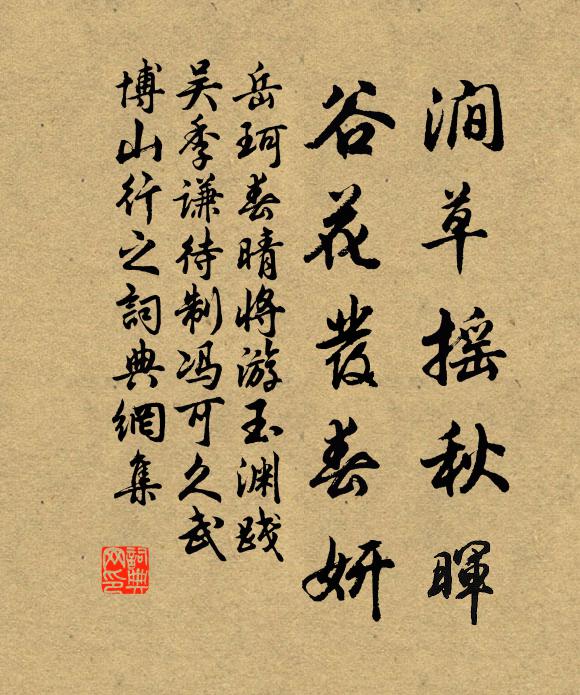 涧草摇秋暉
谷花發春妍
岳珂春晴将游玉渊践
吴季谦待制冯可久武
博山行之詞典網集
詞典網印